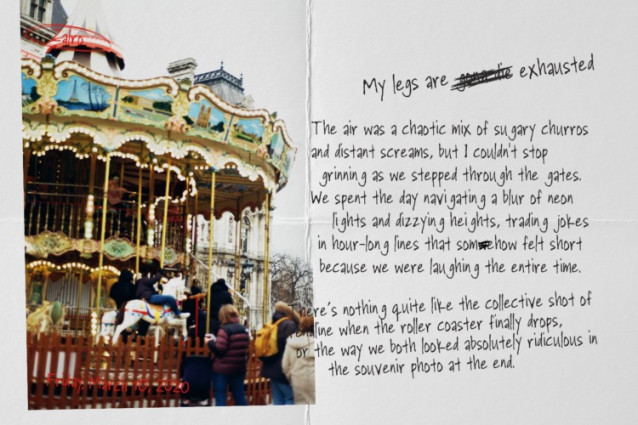 My legs are exhausted
The air was a chaotic mix of sugary churros
and distant screams, but I couldn't stop
grinning as we stepped through the gates.
We spent the day navigating a blur of neon
lights and dizzying heights, trading jokes
in hour-long lines that somehow felt short
because we were laughing the entire time.
ere's nothing quite like the collective shot of
line when the roller coaster finally drops,
or the way we both looked absolutely ridiculous in
the souvenir photo at the end.
2020